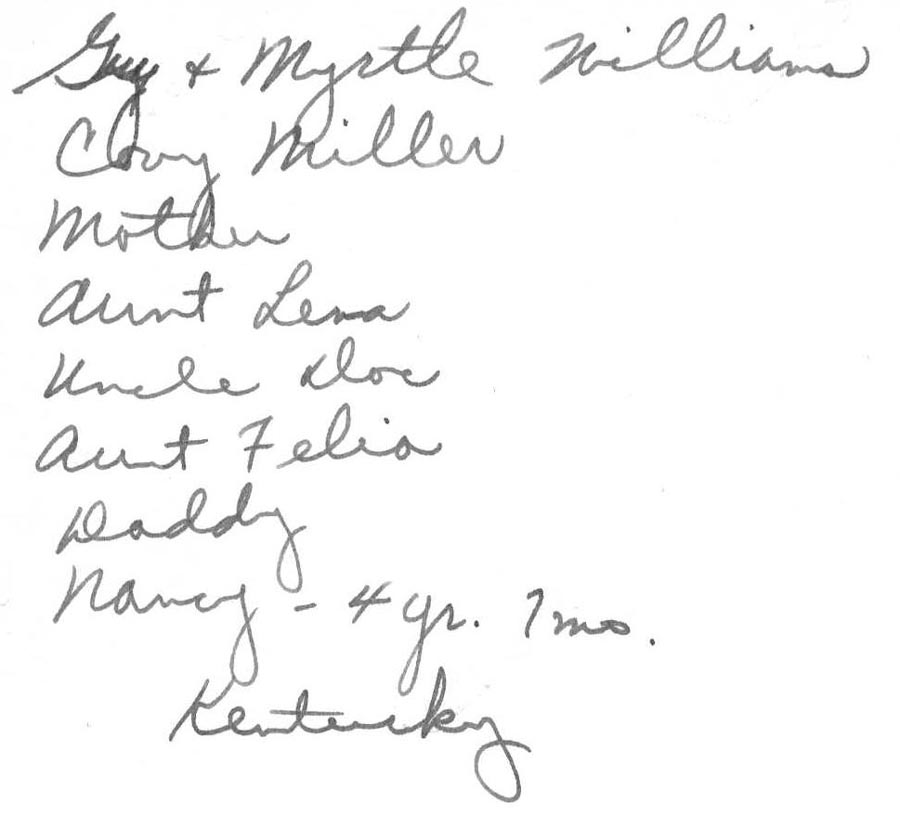 Guy & Myrtle Williams
Miller
Mother
Aunt Lena
Uncle Doc
Aunt Felia
Daddy
Nancy - 4 yr. 7 mo.
Kentucky